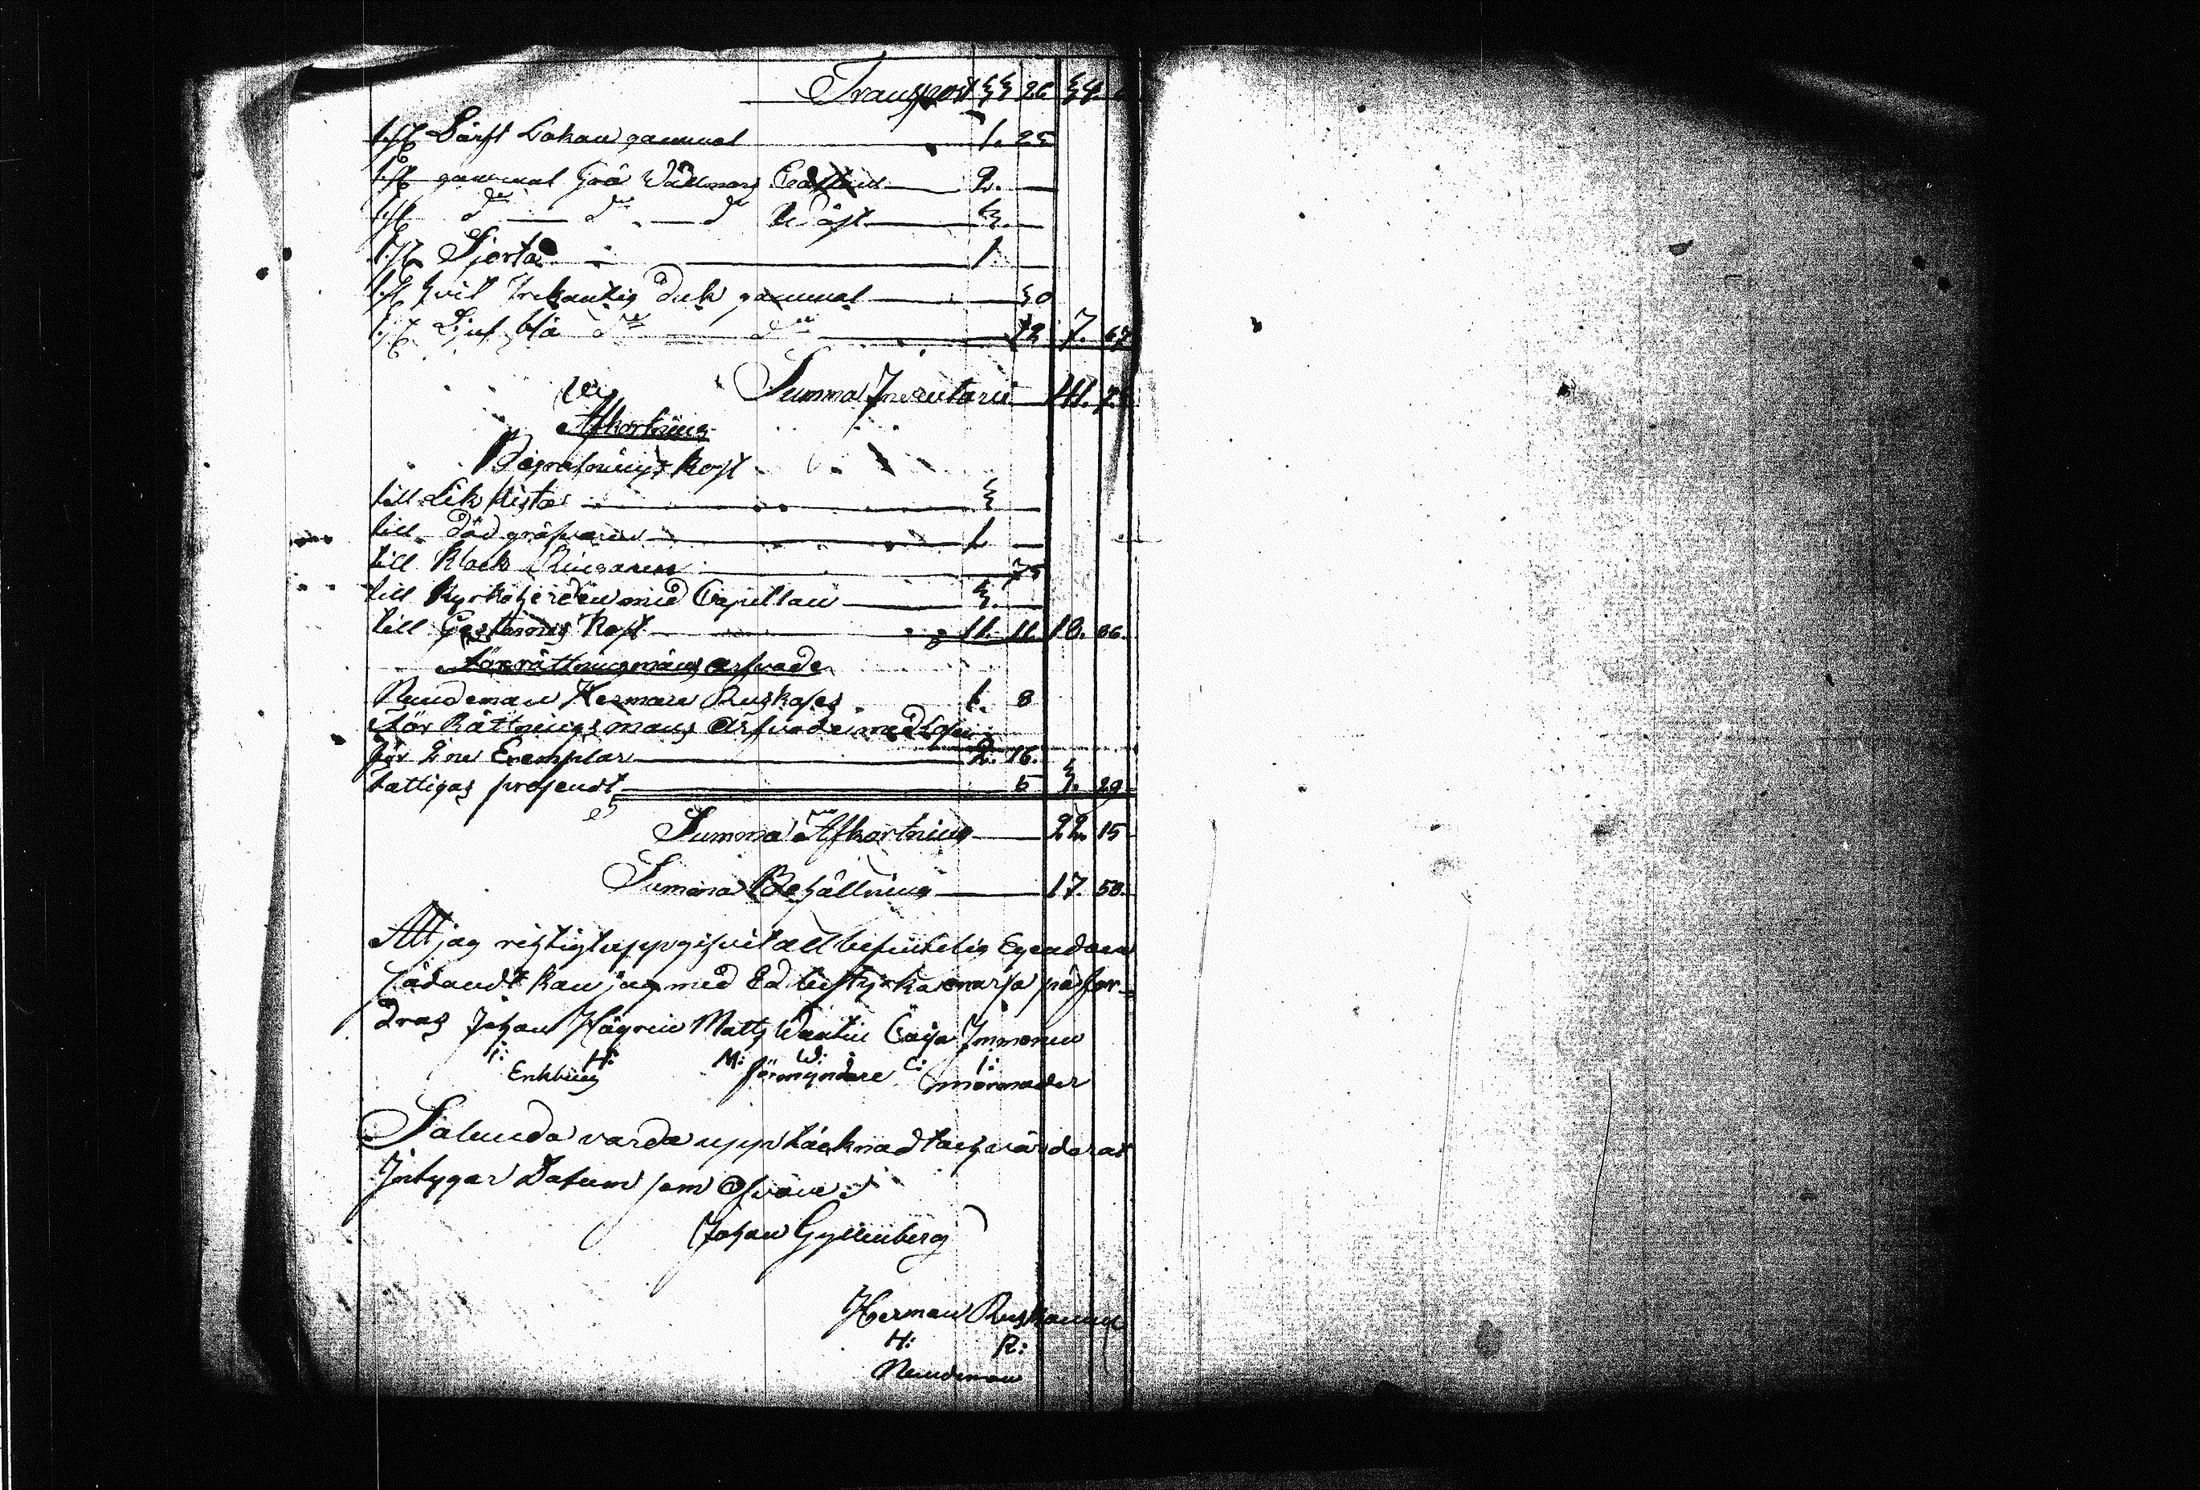 Transport 33 26 34
1 st Lärft Lakan gammal 1. 25
1 st gammal Grå Wallmars 2. —
1 st d:o — d:o — d:o Wäst 3. —
1 st Sjorta 1 —
1 st hvit Trekantig duk gammal 30
1 st Ljus blå d:o — d:o 12 7. 67
Summa Inventarii 41. 7
Afkortning
Begrafnings kost
till Lik kista 3 —
till död gräfvaren 1 —
till Klock Ringaren 75
till Kyrkoherden med Capellan 3. —
till Gestnings Kost 11. 11 18. 86.
Förrättningsmans arfvade
Nämdeman Herman 1. 8
För Rättnings mans Arfvade med
för 2ne Exemplar 2. 16.
Fattigas prosendt 5 3. 29
Summa Afkortning 22. 15
Summa Behållning 17. 50.
Att jag rigtigt uppgifvit all befintelig Egendom
sådandt kan jag med Ed bestyrka om så påfor-
dras Johan Hägren Matts Wantin Caisa Immonen
I: H: M: W: C: I:
Enkling förmyndare mormoder
Sålunda varda upp täcknadt och värderat
Intygar Datum som Ofvan
Johan Gyllenberg
Herman Ruskanen
H: R:
Nämdeman